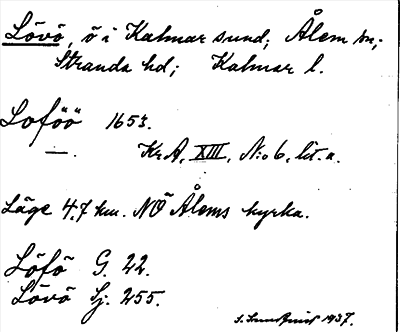 Lövö, ö i Kalmar sund; Ålem sn;
Stranda hd; Kalmar l.
Loföö 1653.
— . KrA, XIII, N:o 6, lit. a.
Läge 4,7 km. NÖ Ålems kyrka.
Löfö G. 22.
Lövö Sj. 255.
S. Sundquist 1937.